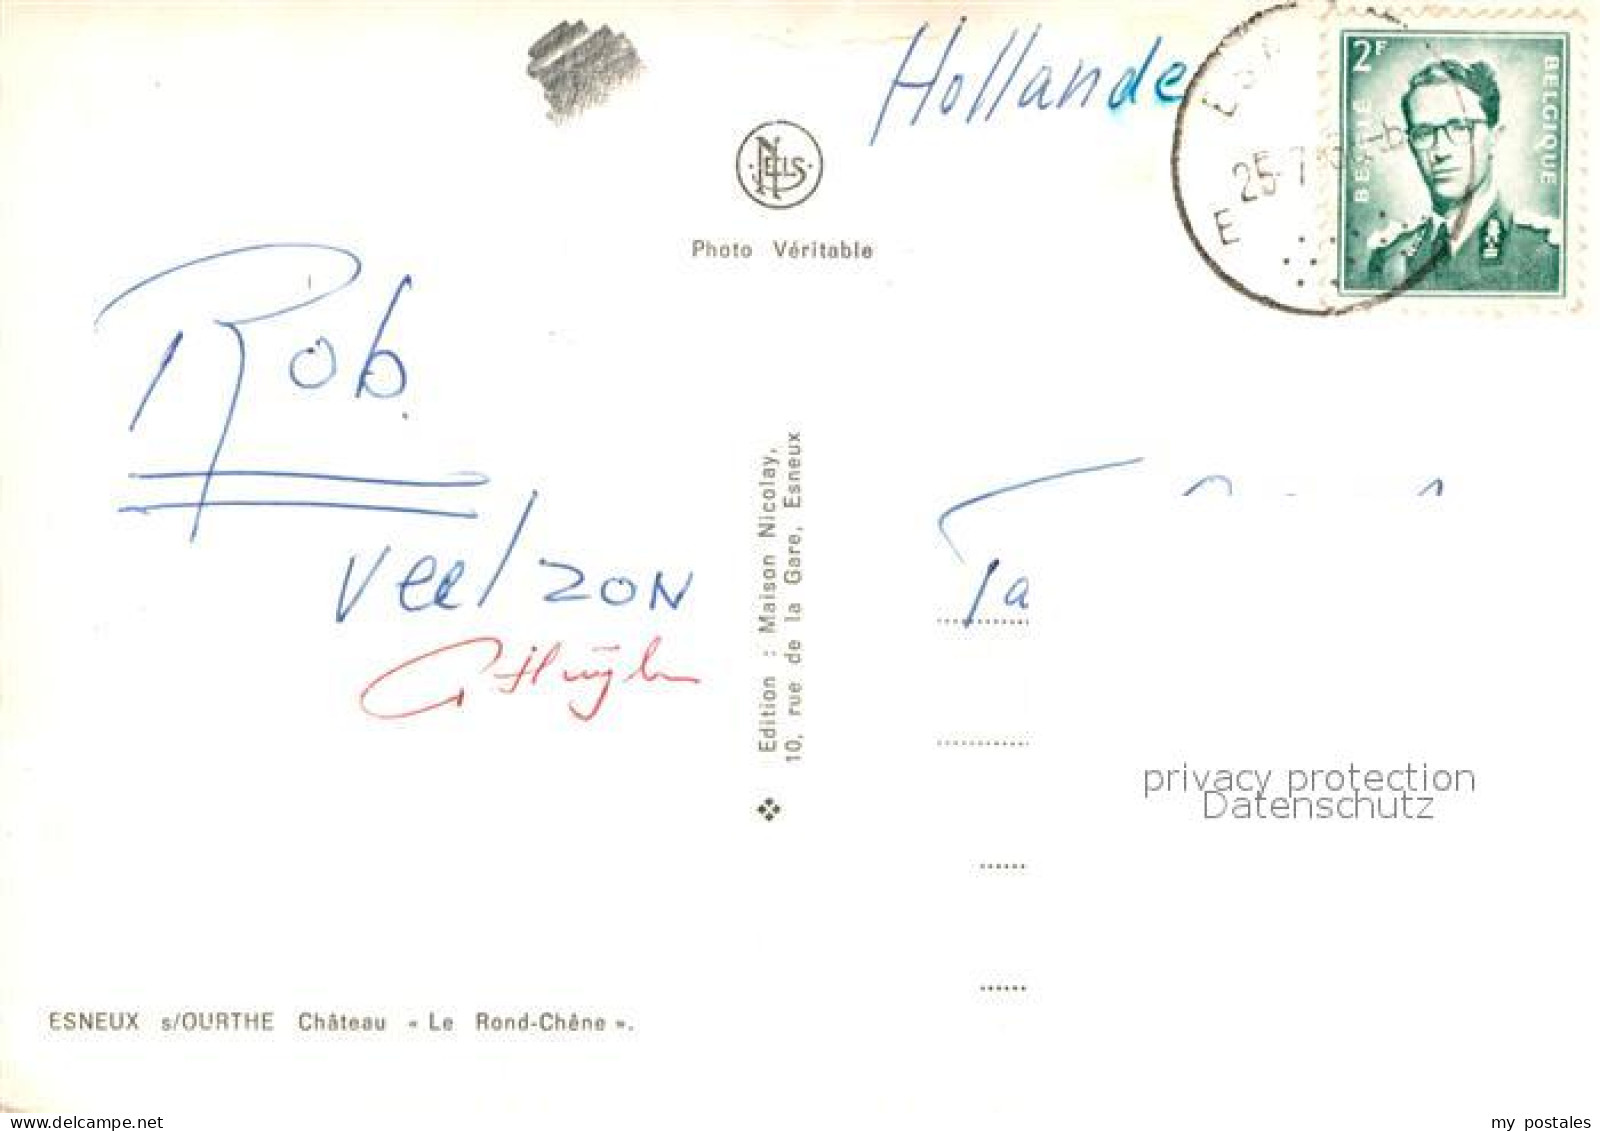 Hollande
NELS
Photo Véritable
2F
BELGIQUE
BELGIË
25-7
E
Rob.
veel zon
Edition : Maison Nicolay,
10, rue de la Gare, Esneux
privacy protection
Datenschutz
ESNEUX s/OURTHE Château « Le Rond-Chêne ».
delcampe.net
my postales